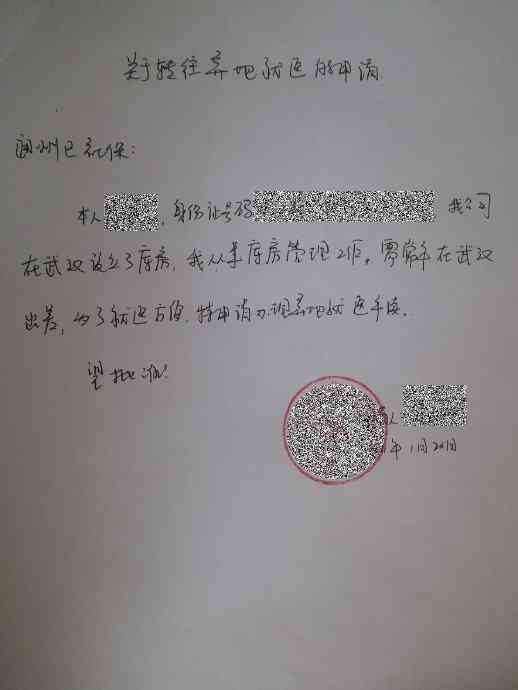 关于转往异地就医的申请
通州区社保:
本人,身份证号码,我公司
在武汉设立了库房,我从事库房管理工作。需常年在武汉
出差,为了就医方便,特申请办理异地就医手续。
望批准!
人
年1月20日